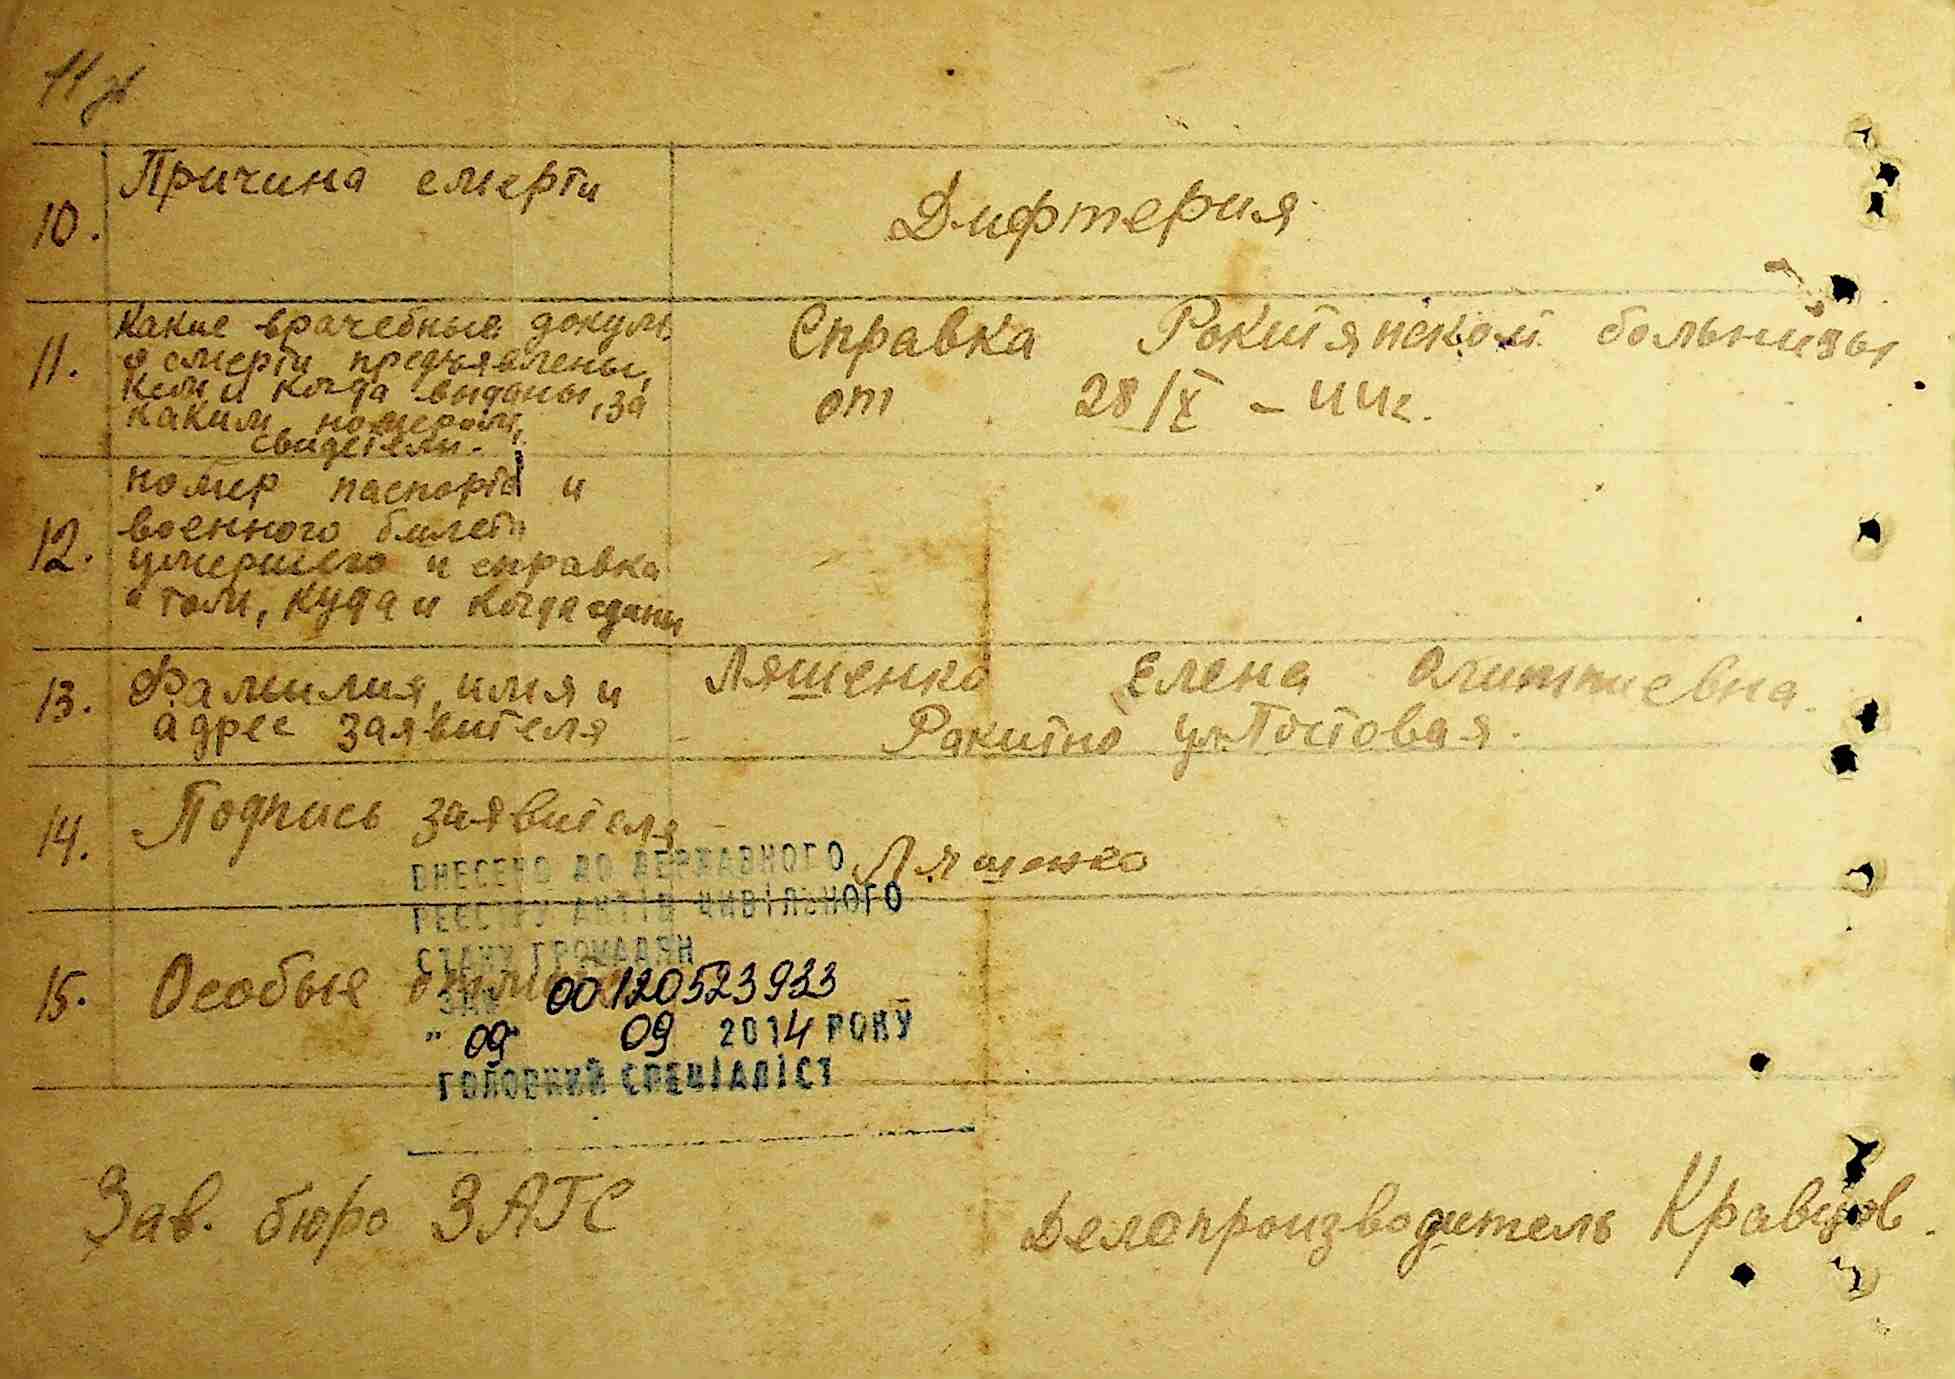 10. Причина смерти
Дифтерия
11. Какие врачебные докум.
о смерти предъявлены,
кем и когда выданы, за
каким номером,
свидетели.
Справка Рокитянской больницы
от 28/X - 44г.
12. номер паспорта и
военного билета
умершего и справка
о том, куда и когда сданы
13. Фамилия, имя и
адрес заявителя
Ляшенко Елена
Ракитно ул Постовая.
14. Подпись заявителя
Ляшенко
15. Особые
ВНЕСЕНО ДО ДЕРЖАВНОГО
РЕЄСТРУ АКТІВ ЦИВІЛЬНОГО
СТАНУ ГРОМАДЯН
ЗА № 00120523933
" 09 " 09 2014 РОКУ
ГОЛОВНИЙ СПЕЦІАЛІСТ
Зав. бюро ЗАГС
Делопроизводитель Кравцов.